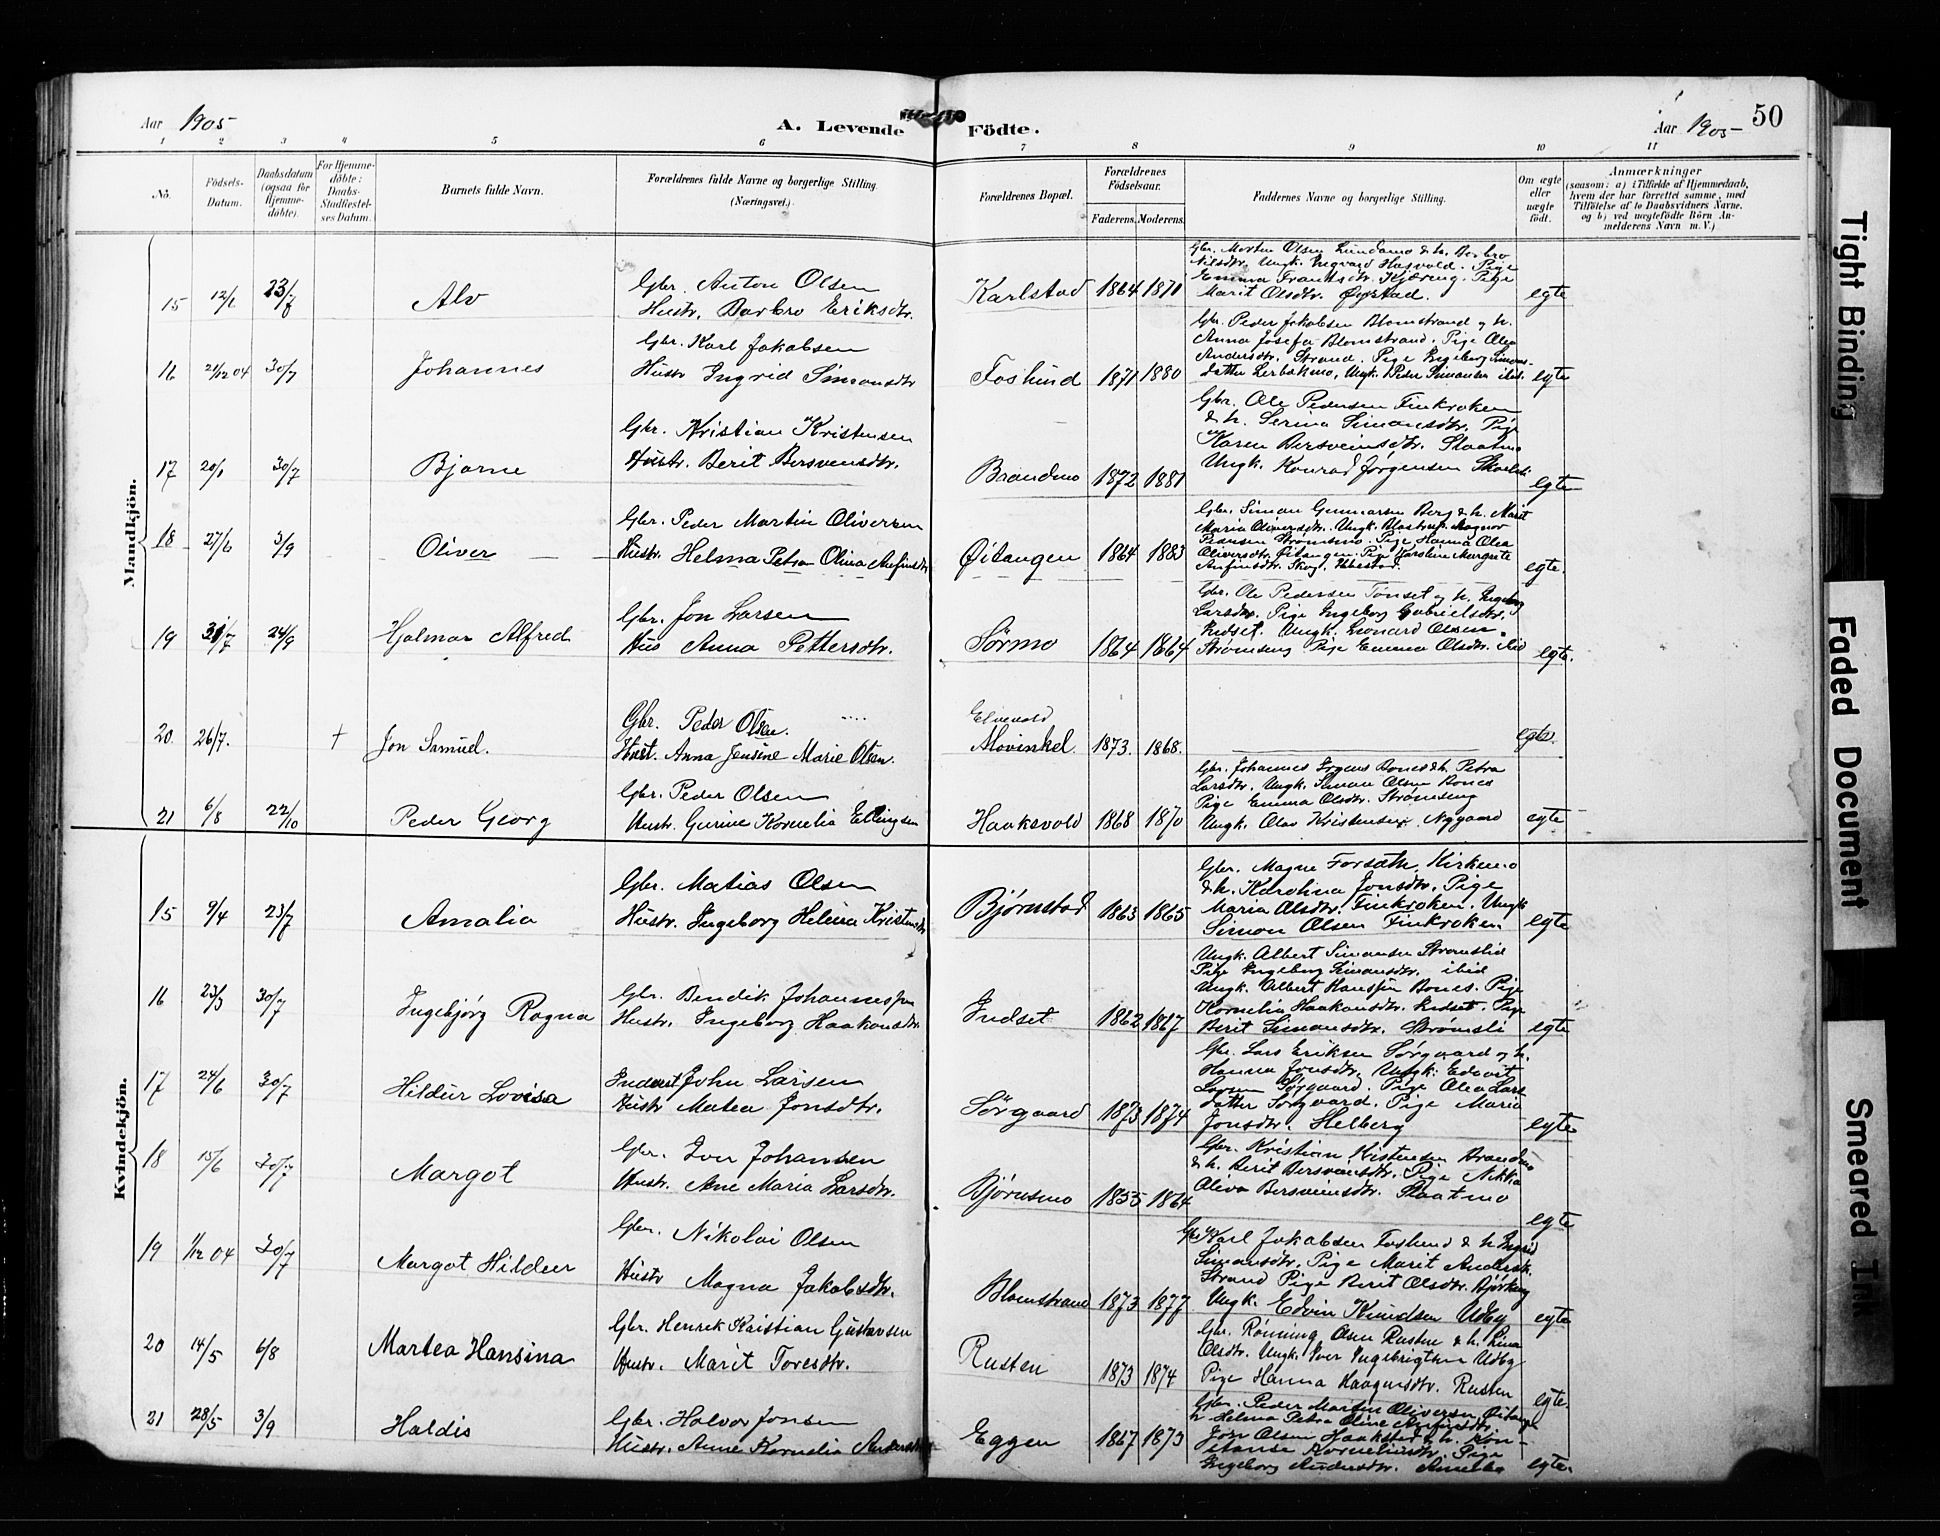 Aar 1905
A. Levende Födte.
Aar 1905
50
1 2 3 4 5 6 7 8 9 10 11
No.
Födsels-Datum.
Daabsdatum (ogsaa for Hjemme-döbte).
For Hjemme-döbte: Daabs-Stadfæstel-ses Datum.
Barnets fulde Navn.
Forældrenes fulde Navne og borgerlige Stilling. (Næringsvei.)
Forældrenes Bopæl.
Forældrenes Födselsaar.
Faderens. Moderens.
Faddernes Navne og borgerlige Stilling.
Om ægte eller uægte födt.
Anmærkninger
(saasom: a) i Tilfælde af Hjemmedaab,
hvem der har forrettet samme, med
Tilföielse af to Daabsvidners Navne,
og b) ved uægtefödte Börn An-
melderens Navn m. V.)
Mandkjön.
15 12/1 23/7 Alv
Gbr. Anton Olsen
Hustr. Barbro Eriksdtr.
Karlstad 1864 1871
Gbr. Morten Olsen Lundamo & h. Barbro
Nilsdtr. Ungk. Ingvard Hasvold. Pige
Emma Franksdtr. Kjæreng. Pige
Marit Olsdtr. Øvrstad.
egte
16 21/12 04 30/7 Johannes
Gbr. Karl Jakobsen
Hustr Ingrid Simonsdtr
Foshund 1871 1880
Gbr. Peder Jakobsen Blomstrand og h.
Anna Josefa Blomstrand. Pige Olea
Andersdtr. Strand. Pige Ingeborg Simons-
datter Lerbakmo, Ungk. Peder Simonsen ibid.
egte
17 20/1 30/7 Bjarne
Gbr. Kristian Kristensen
Hustr. Berit Bersvensdtr.
Brandmo 1872 1881
Gbr. Ole Pedersen Finkroken
& h. Serina Simonsdtr. Pige
Karen Bersveinsdtr. Slaatmo
Ungk. Konrad Jørgensen
egte
18 27/6 3/9 Oliver
Gbr. Peder Martin Oliversen
Hustr. Helma Petra Olina Anfinsdtr
Øitangen 1864 1883
Gbr. Simon Gunnarsen Berg & h. Marit
Maria Oliversdtr. Ungk.
Pedersen Strømsmo. Pige Hanna Olea
Oliversdtr. Øitangen. Pige Karoline Margrete
Anfinsdtr. Skog, Ibbestad.
egte.
19 31/7 24/9 Hjalmar Alfred
Gbr. Jon Larsen
Hus Anna Pettersdtr.
Sørmo 1864 1864
Gbr. Ole Pedersen Tønset og h. Ingeborg
Larsdtr. Pige Ingeborg Gabrielsdtr.
Indset. Ungk. Leonard Olsen
Strømseng Pige Emma Olsdtr. ibid
egte.
20 26/7. † Jon Samuel.
Gbr. Peder Olsen.
Hust. Anna Jensine Marie Olsen.
Elvevold
Movinkel 1873. 1868.
egte.
21 6/8 22/10 Peder Georg
Gbr. Peder Olsen
Hustr. Gurine Kornelia Ellingsen
Haaksvold 1868 1870
Gbr. Johannes Bones & h. Petra
Larsdtr. Ungk. Simon Olsen Bones
Pige Emma Olsdtr. Strømseng
Ungk. Olav Kristensen Nygaard
egte
Kvindekjön.
15 9/4 23/7 Amalia
Gbr. Matias Olsen
Hustr. Ingeborg Helena Kristensdtr
Bjørnstad 1863 1865
Gbr. Magne Forsæth, Kirkemo
& h. Karolina Jonsdtr. Pige
Maria Olsdtr. Finkroken. Ungk
Simon Olsen Finkroken
egte
16 23/3 30/7 Ingebjørg Ragna
Gbr. Bendik Johannessen
Hustr. Ingeborg Haakonsdtr
Indset 1862 1867
Ungk. Albert Simonsen Strømslid
Pige Ingeborg Simonsdtr. ibid
Ungk. Albert Hanssen Bones. Pige
Kornelia Haakonsdtr. Indset. Pige
Berit Simonsdtr. Strømsli
egte
17 24/6 30/7 Hildur Lovisa
Inderst John Larsen
Hustr Matea Jonsdtr.
Sørgaard 1873 1874
Gbr. Lars Eriksen Sørgaard og h.
Hanna Jonsdtr, Ungk: Edvart
Larsen Sørgaard. Pige Olea Lars
datter Sørgaard. Pige Maria
Jonsdtr. Helberg
egte
18 15/6 30/7 Margot
Gbr. Iver Johansen
Hustr. Ane Maria Larsdtr.
Bjørnsmo 1855 1864
Gbr. Kristian Kistensen Brandmo
& h. Berit Bersvensdtr. Pige Nikka
Oliva Bersveinsdtr. Slaatmo
egte
19 1/12 04 30/7 Margot Hildur
Gbr. Nikolai Olsen
Hustr Magna Jakobsdtr.
Blomstrand 1873 1877
Gbr Karl Jakobsen Foslund & h Ingrid
Simonsdtr. Pige Marit Andersdt.
Strand Pige Berit Olsdtr. Bjørkeng
Ungk. Edvin Knudsen Udby
egte
20 14/5 6/8 Martea Hansina
Gbr. Henrik Kristian Gustavsen
Hustr. Marit Toresdtr.
Rusten 1873 1874
Gbr. Rønning Olsen Rusten & h. Lina
Olsdtr. Ungk. Iver Ingebrigtsen Udby
Pige Hanna Haagensdtr. Rusten
egte.
21 28/5 3/9 Haldis
Gbr. Halvor Jonsen
Hustr. Anne Kornelia Andersdtr
Eggen 1867 1873
Gbr. Peder Martin Oliversen Øitangen
h Helma Petra Oline Anfinsdtr
Jon Olsen Haakstad & h. Kon-
stanse Korneliusdtr. Pige
Ingeborg Andersdtr.
egte.
Tight Binding
Faded Document
Smeared Ink